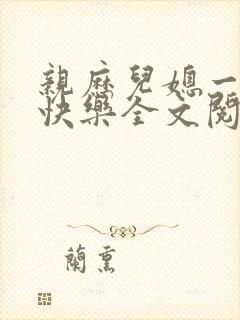 親歷兒媳一
快樂全文閱
蘭熏